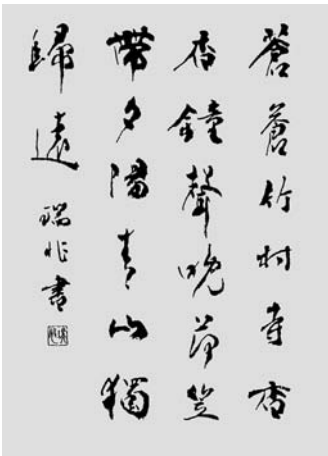 蒼蒼竹林寺杳
杳鐘聲晚荷笠
帶夕陽青山獨
歸遠
瑞書